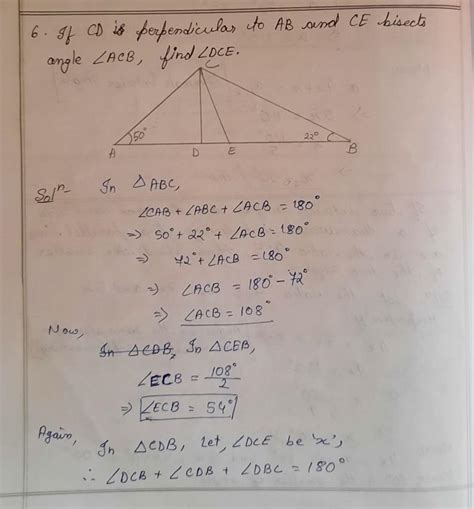 6. If CD is perpendicular to AB and CE bisects
angle ∠ACB, find ∠DCE.
C
50°
22°
A
D
E
B
Solⁿ-
In △ABC,
∠CAB + ∠ABC + ∠ACB = 180°
⇒ 50° + 22° + ∠ACB = 180°
⇒ 72° + ∠ACB = 180°
⇒ ∠ACB = 180° - 72°
⇒ ∠ACB = 108°
Now,
In △CDB, In △CEB,
∠ECB = 108°/2
⇒ ∠ECB = 54°
Again,
In △CDB, let, ∠DCE be 'x',
∴ ∠DCB + ∠CDB + ∠DBC = 180°